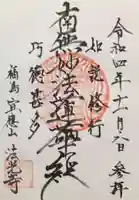 令和四年十一月八日 参拝
如説修行
南無妙法蓮華経
功徳甚多
福島 宗應山 法華寺